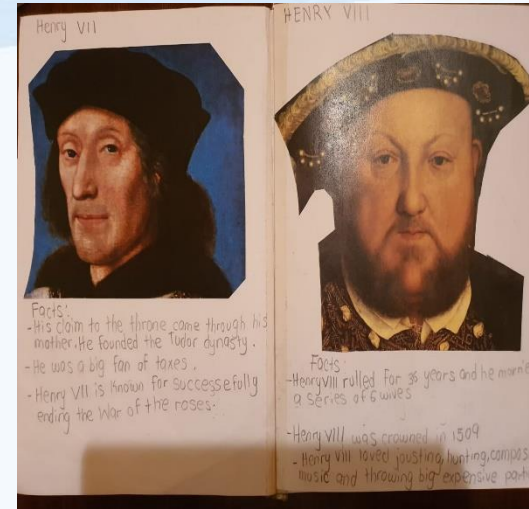 Henry VII
Facts:
-His claim to the throne came through his
mother. He founded the Tudor dynasty.
-He was a big fan of taxes.
-Henry VII is known for successefully
ending the War of the roses.
HENRY VIII
Facts:
-Henry VIII rulled for 36 years and he
a series of 6 wives
-Henry VIII was crowned in 1509
-Henry VIII loved jousting, hunting,
music and throwing big expensive